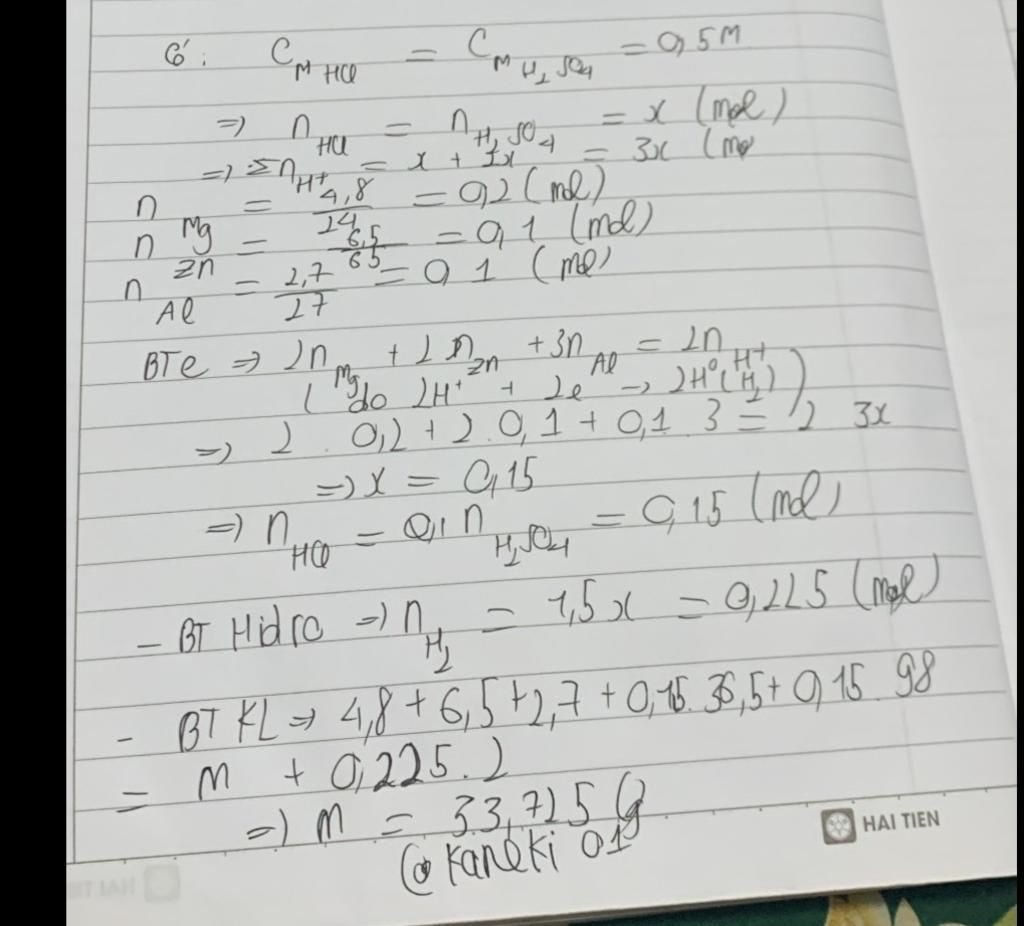 Có: C_M HCl = C_M H2SO4 = 0,5M
=> n_HCl = n_H2SO4 = x (mol)
=> Σn_H+ = x + 2x = 3x (mo
n_Mg = 4,8/24 = 0,2 (mol)
n_Zn = 6,5/65 = 0,1 (mol)
n_Al = 2,7/27 = 0,1 (mol)
BTe => 2n_Mg + 2n_Zn + 3n_Al = 2n_H+
( do 2H+ + 2e -> 2H⁰(H2) )
=> 2 . 0,2 + 2 . 0,1 + 0,1 . 3 = 2 3x
=> x = 0,15
=> n_HCl = 0,1 n_H2SO4 = 0,15 (mol)
- BT Hidro => n_H2 = 1,5x = 0,225 (mol)
- BT KL => 4,8 + 6,5 + 2,7 + 0,15.36,5 + 0,15.98
= m + 0,225.2
=> m = 33,725 (g
@kaneki 01
HAI TIEN